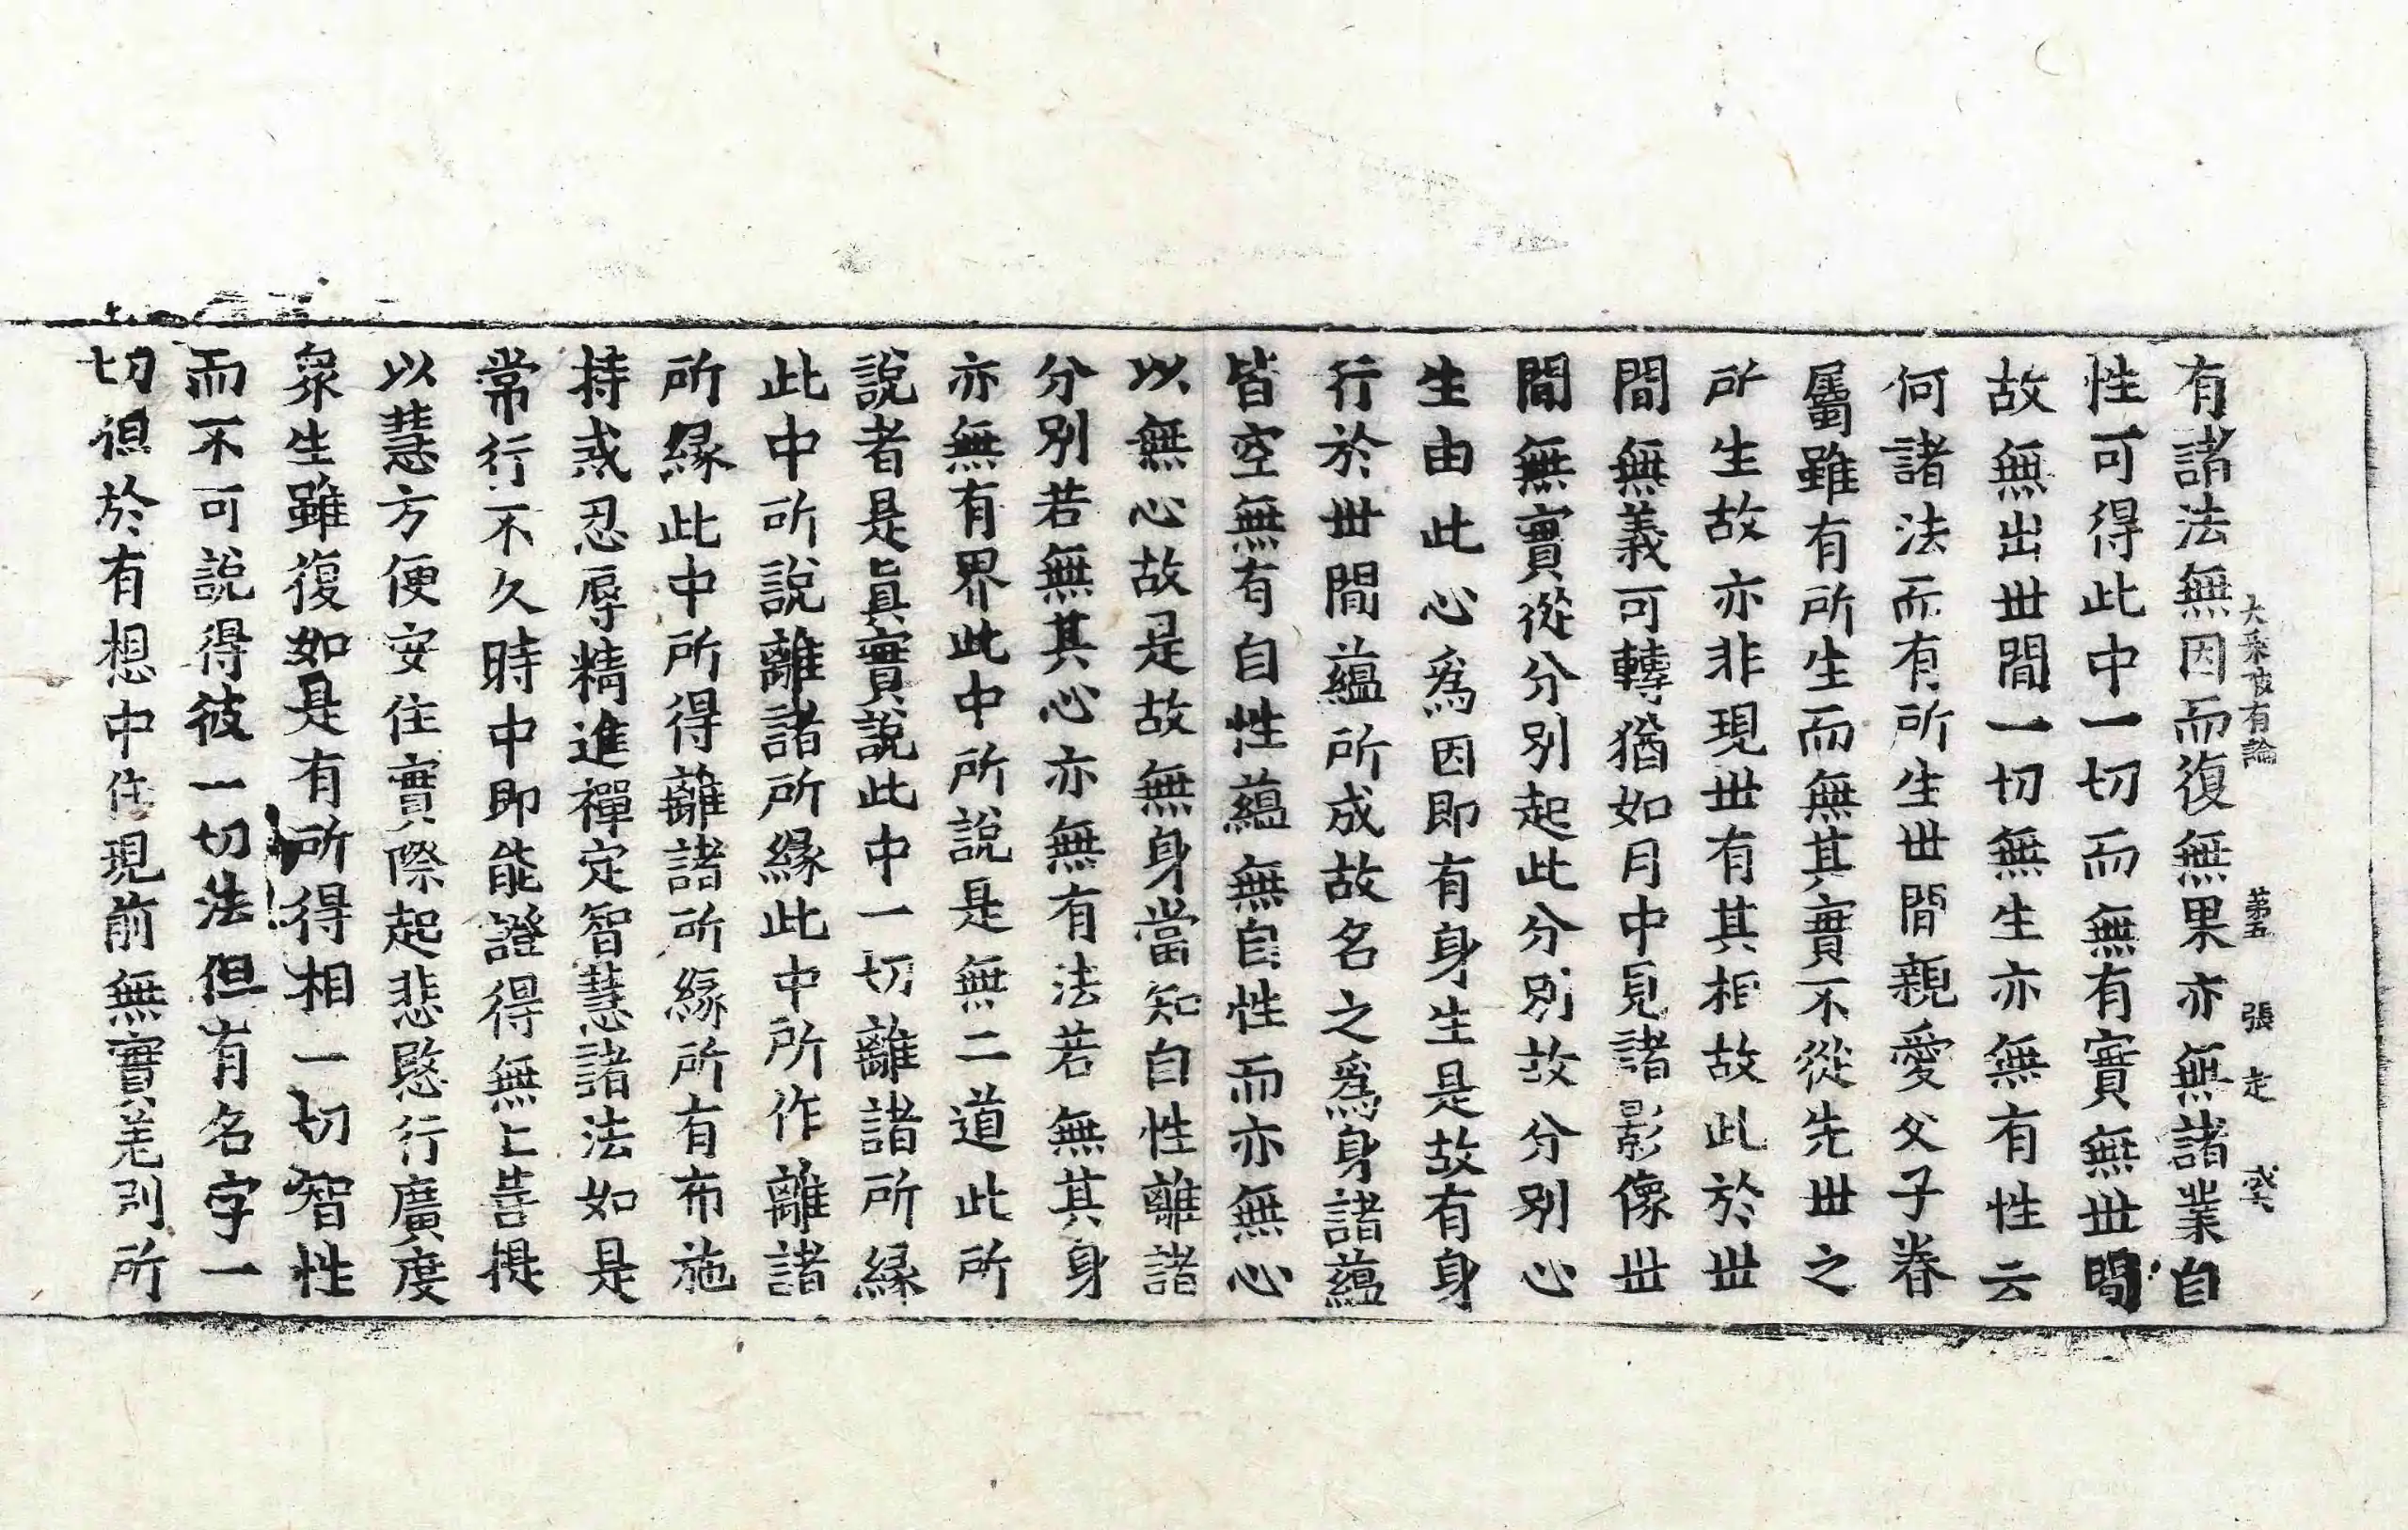 大乘破有論　第五　張　走
有諸法無因而復無果亦無諸業自
性可得此中一切而無有實無世間
故無出世間一切無生亦無有性云
何諸法而有所生世間親愛父子眷
屬雖有所生而無其實不從先世之
所生故亦非現世有其相故此於世
間無義可轉猶如月中見諸影像世
間無實從分別起此分別故分別心
生由此心為因即有身生是故有身
行於世間蘊所成故名之為身諸蘊
皆空無有自性蘊無自性而亦無心
以無心故是故無身當知自性離諸
分別若無其心亦無有法若無其身
亦無有界此中所說是無二道此所
說者是眞實說此中一切離諸所緣
此中所說離諸所緣此中所作離諸
所緣此中所得離諸所緣所有布施
持戒忍辱精進禪定智慧諸法如是
常行不久時中即能證得無上菩提
以慧方便安住實際起悲愍行廣度
衆生雖復如是有所得相一切智性
而不可說得彼一切法但有名字一
切但於有想中住現前無實差別所